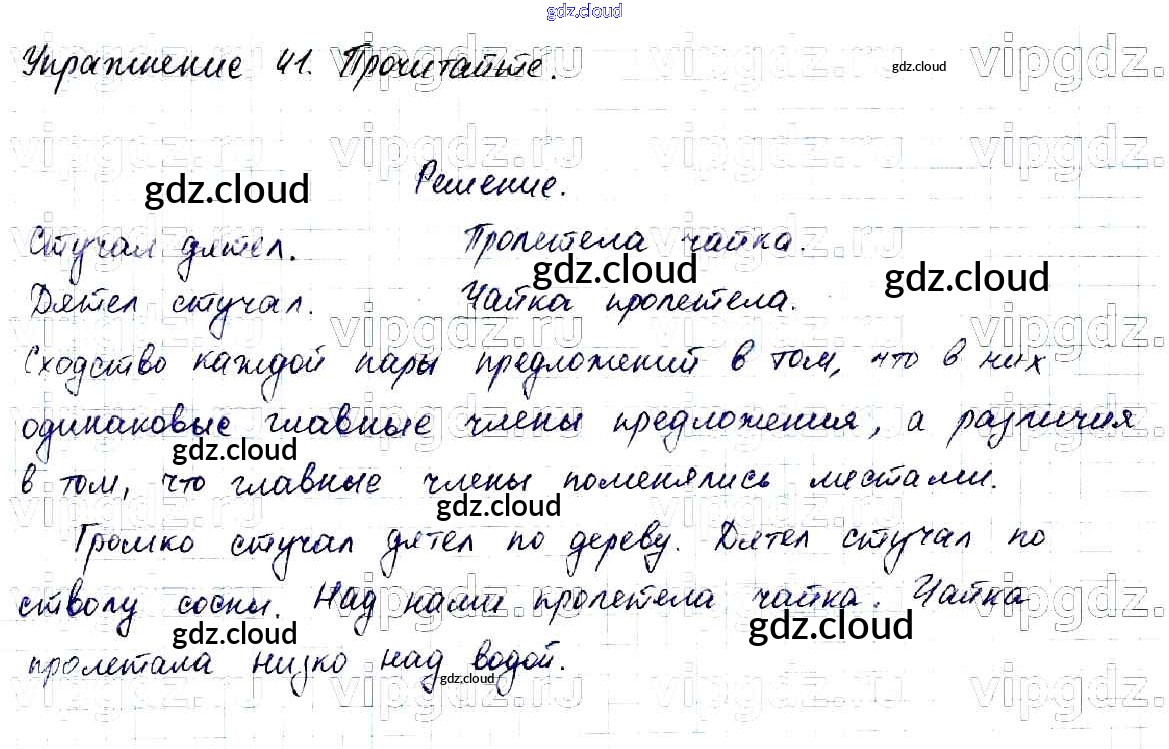 gdz.cloud
Упражнение 41. Прочитайте.
gdz.cloud
Решение.
gdz.cloud
Стучал дятел. Пролетела чайка.
gdz.cloud gdz.cloud
Дятел стучал. Чайка пролетела.
Сходство каждой пары предложений в том, что в них
одинаковые главные члены предложения, а различия
gdz.cloud
в том, что главные члены поменялись местами.
gdz.cloud
Громко стучал дятел по дереву. Дятел стучал по
стволу сосны. Над нами пролетела чайка. Чайка
gdz.cloud gdz.cloud
пролетала низко над водой.
gdz.cloud
vipgdz.ru